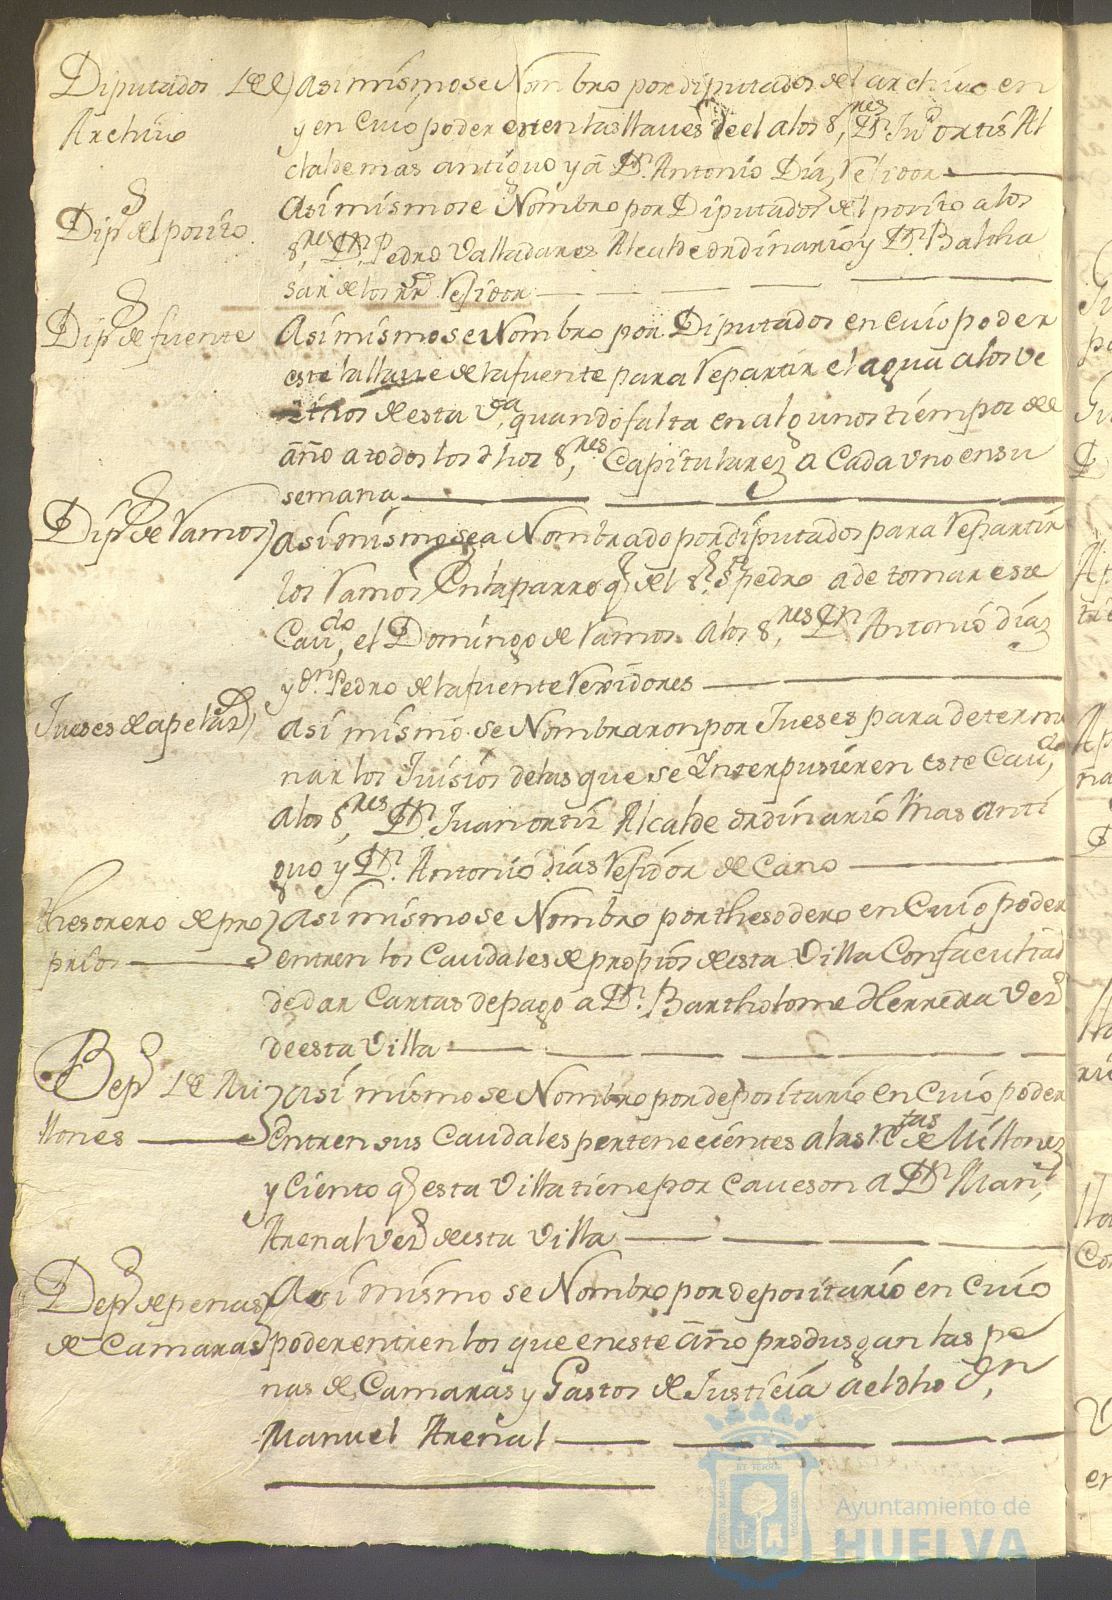 Diputados del
Archivo
Asi mismo se Nombro por diputados del archivo en
y en cuio poder esten las llaves de el a los S.res D.n Ju.o ortis Al
calde mas antiguo y a D.n Antonio Dias, Residor
Dip.s del posito
Asi mismo se Nombro por Diputados del posito a los
S.res D.n Pedro Valladares Alcalde ordinario y D.n Baltha
sar de los Residor
Dip.s de fuente
Asi mismo se Nombro por Diputados en cuio poder
este la llave de la fuente para Repartir el agua a los ve
sinos de esta V.a quando falta en algunos tiempos del
año a todos los dhos S.res Capitulares a cada uno en su
semana
Dip.s de Ramos
Asi mismo se a Nombrado por diputados para Repartir
los Ramos en la parroq.l del S.r S.n pedro a de tomar este
Cav.do, el Domingo de Ramos a los S.res D.n Antonio dias
y d.n Pedro de la fuente Rexidores
Jueses de apelaz.s
Asi mismo se Nombraron por Jueses para determi
nar los Juisios de las que se Interpusieren en este Cav.do,
a los S.res D.n Juan ortiz Alcalde ordinario Mas anti
guo y D.n Antonio dias Residor de Cano
thesorero de pro
prios
Asi mismo se Nombro por thesodero en Cuio poder
entren los Caudales de propios de esta Villa Con facultad
de dar Cartas de pago a D.n Bartholome Herrera Vez.o
de esta Villa
Dep.o de Mi
llones
Asi mismo se Nombro por depositario en cuio poder
Entren sus Caudales pertenecientes a las R.tas de Millones
y Ciento q esta Villa tiene por caveson a D.n Man.l,
Arenal Vez.o de esta Villa
Dep.o de penas
de Camaras
Asi mismo se Nombro por depositario en Cuio
poder entren los que en este año produsgan las pe
nas de Camaras y Gastos de Justicia a el dho d.n
Manuel Arenal
Ayuntamiento de
HUELVA